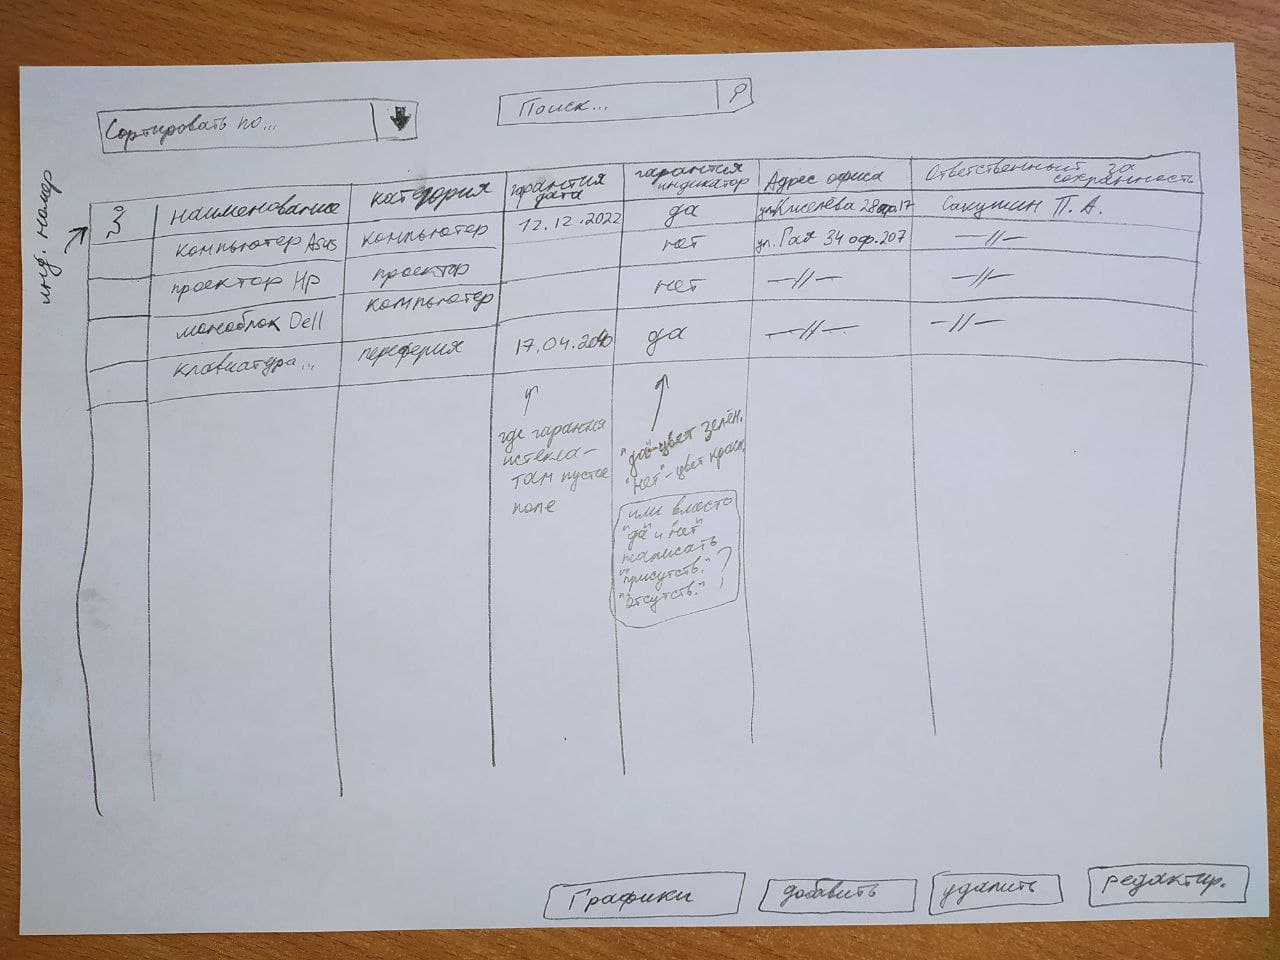 Сортировать по...
Поиск...
инд. номер
наименование категория гарантия дата гарантия индикатор Адрес офиса Ответственный за сохранность
компьютер Asus компьютер 12.12.2022 да ул. Киселёва 28 оф.17 Сакушин П. А.
проектор Hp проектор нет ул. Гая 34 оф.207 —//—
моноблок Dell компьютер нет —//— —//—
клавиатура... переферия 17.04. да —//— —//—
где гарантия
истекла -
там пустое
поле
"да"-цвет зелён.
"нет"-цвет красн.
или вместо
"да" и "нет"
написать
"присутств."
"отсутств."?
Графики добавить удалить редактир.